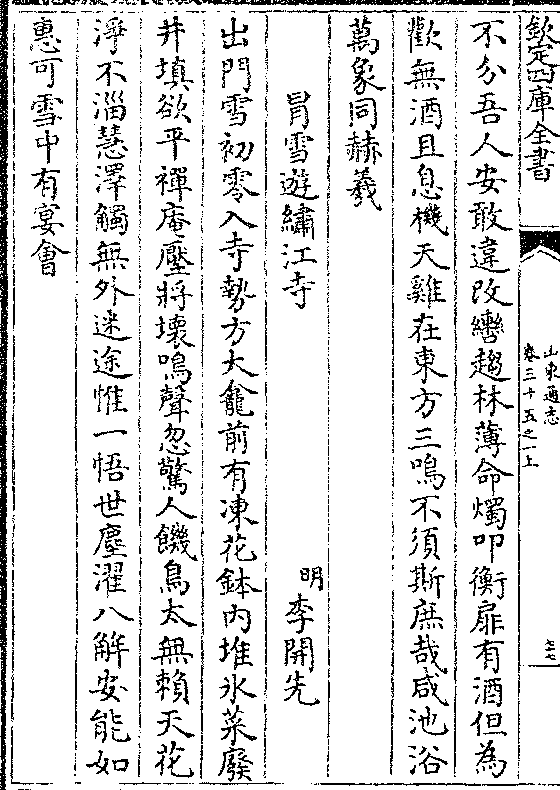 欽定四庫全書
山東通志
卷三十五之一上
不分吾人安敢違改轡趨林薄命燭叩衡扉有酒但為
歡無酒且息機天雞在東方三鳴不須斯庶哉咸池浴
萬象同赫羲
冐雪遊繡江寺
明李開先
出門雪初零入寺勢方大龕前有凍花鉢內堆氷菜廢
井填欲平禪庵壓將壞鳴聲忽驚人饑鳥太無賴天花
淨不淄慧澤觸無外迷途惟一悟世塵濯八解安能如
惠可雪中有宴會